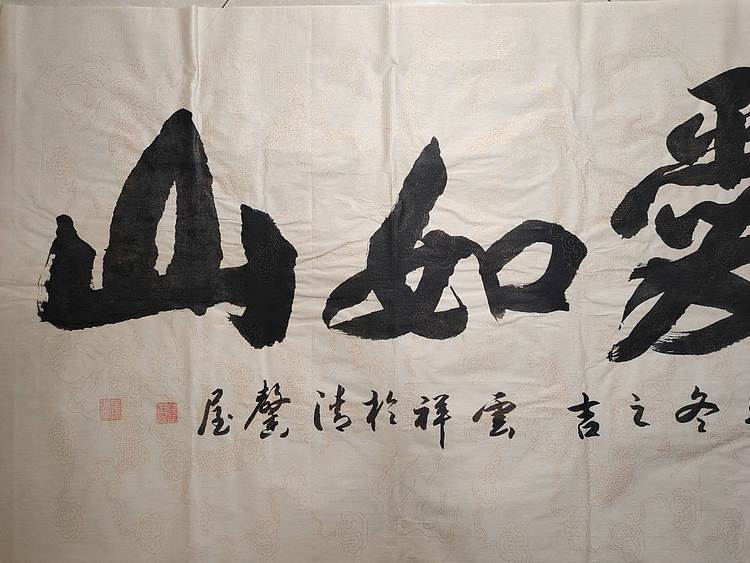 如山
冬之吉雲祥於清馨屋